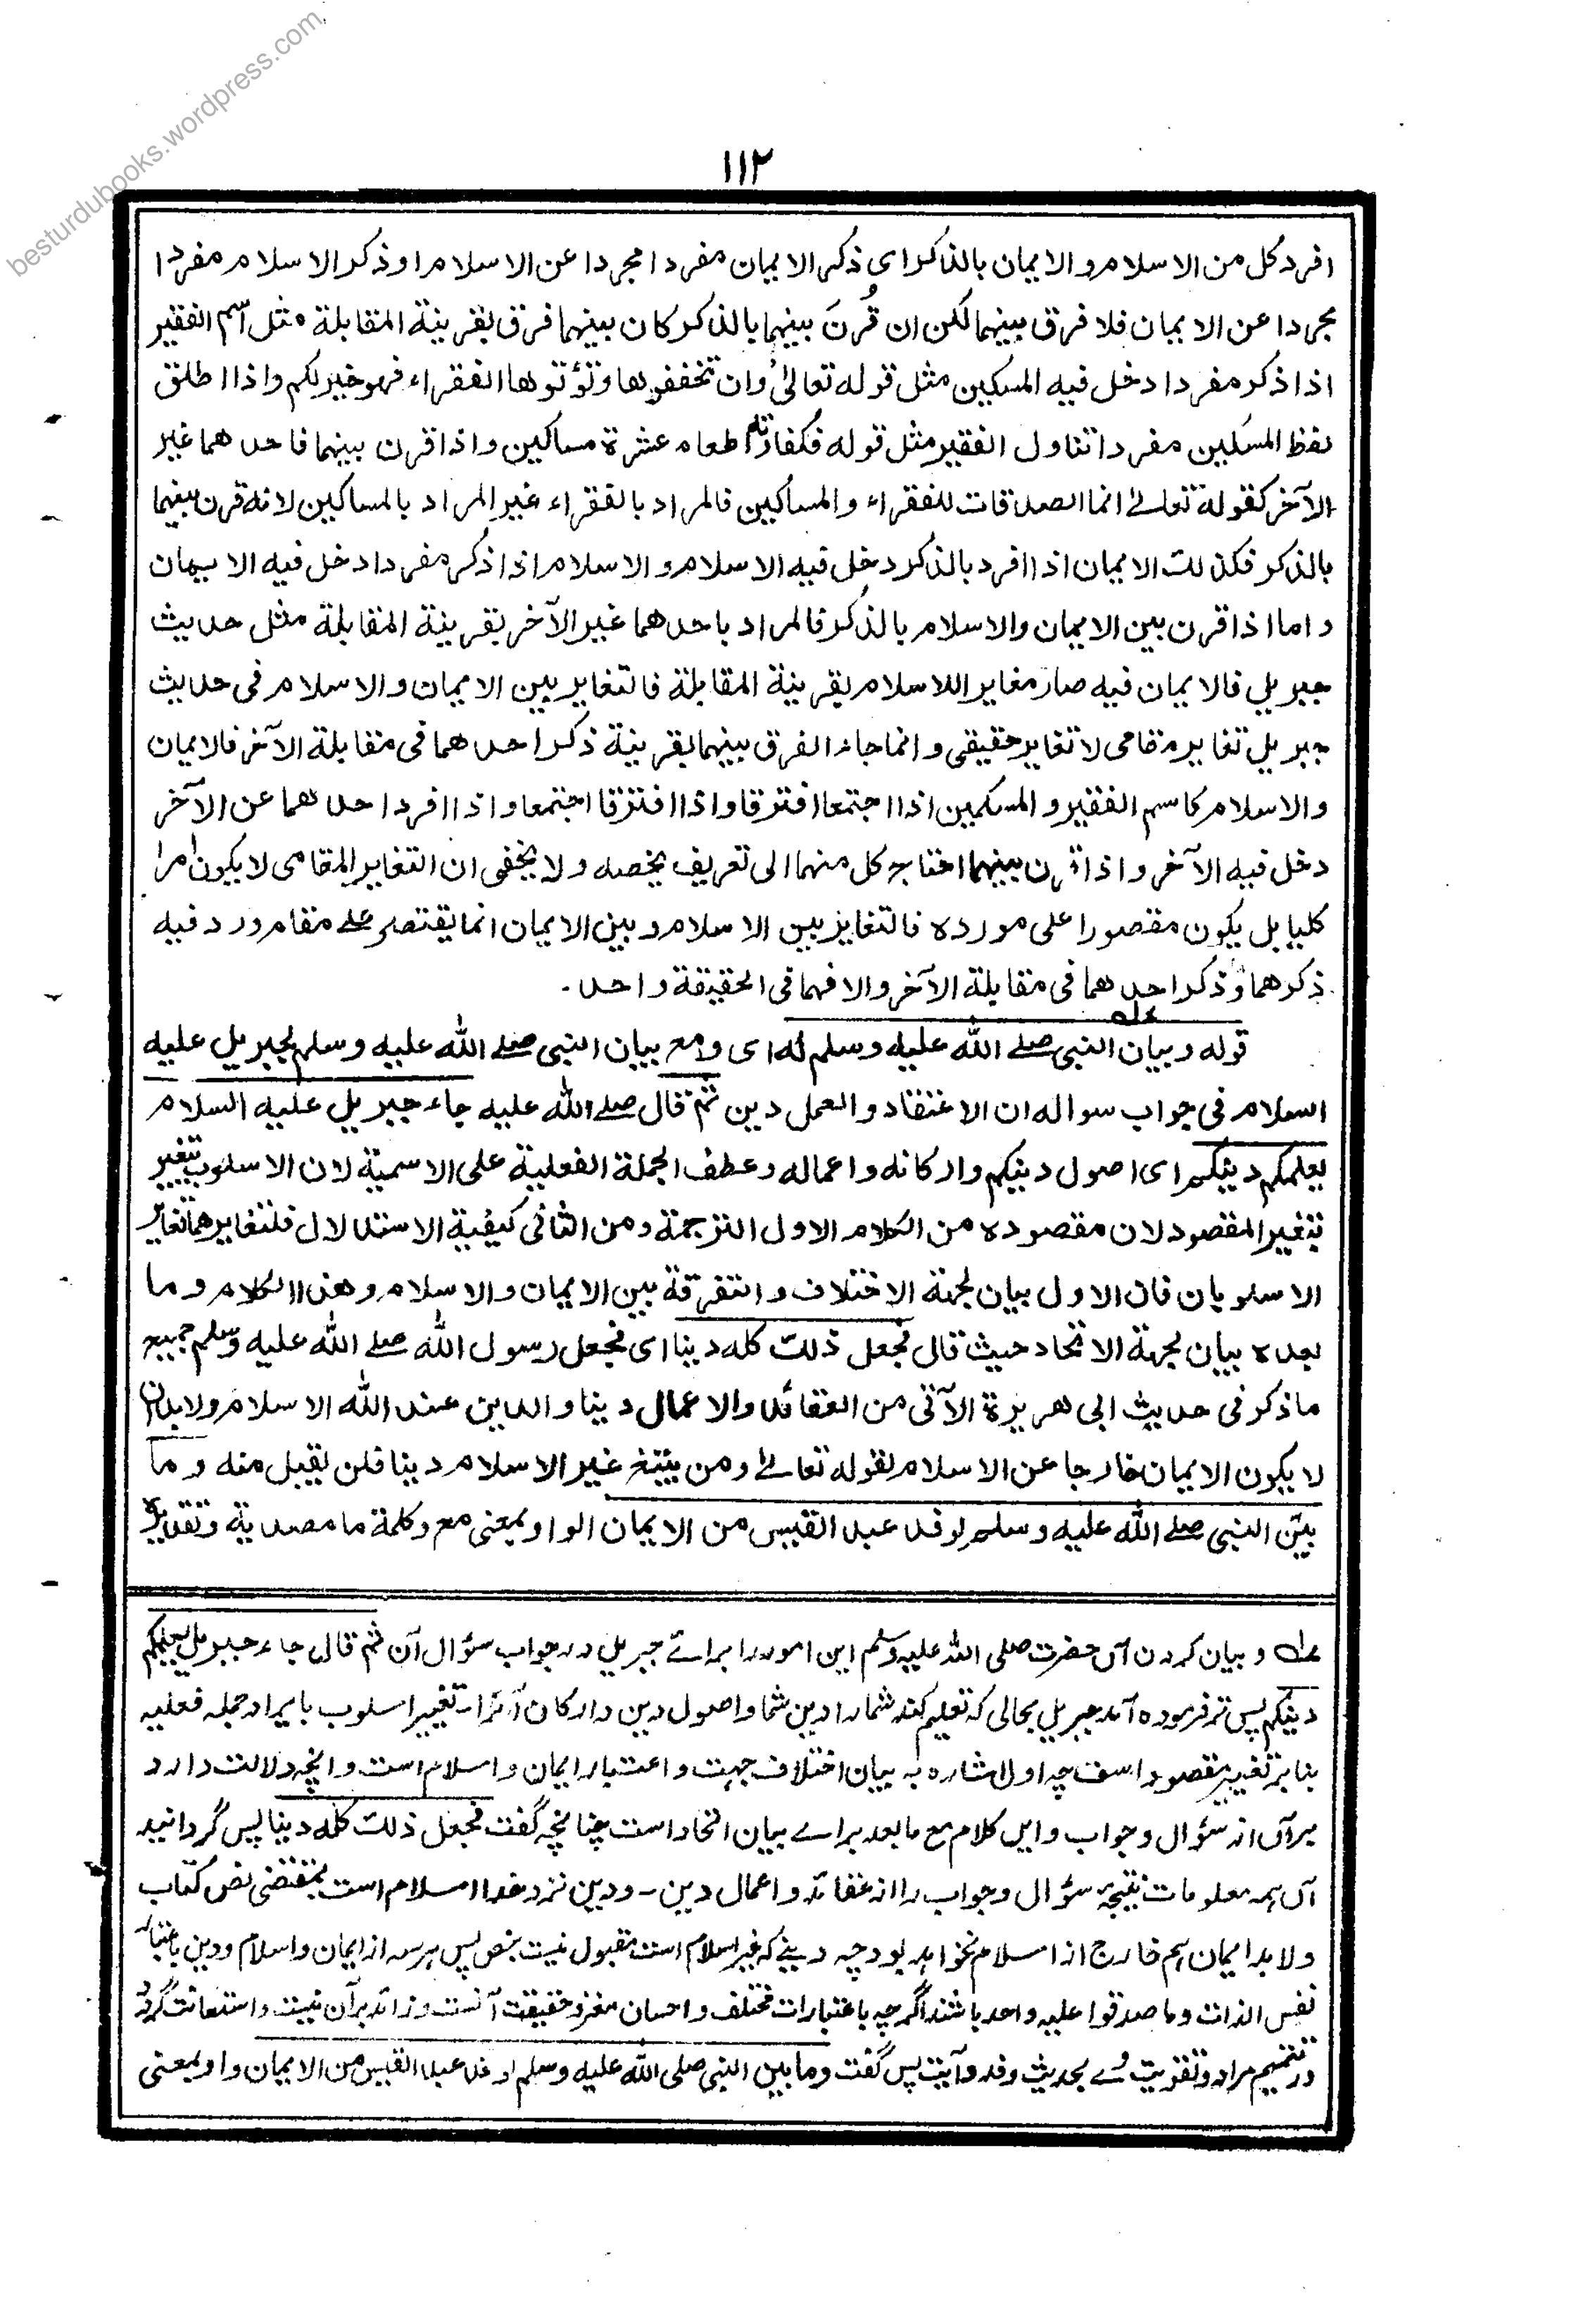 besturdubooks.wordpress.com
١١٢
افرد كل من الاسلام والايمان بالذكر اى ذكر الايمان مفردا مجردا عن الاسلام او ذكر الاسلام مفردا
مجردا عن الايمان فلا فرق بينهما لكن ان قُرنَ بينهما بالذكر كان بينهما فرق بقرينة المقابلة مثل اسم الفقير
اذا ذكر مفردا دخل فيه المسكين مثل قوله تعالىٰ وان تخفوها وتؤتوها الفقراء فهو خير لكم واذا اطلق
لفظ المسكين مفردا تناول الفقير مثل قوله فكفارته اطعام عشرة مساكين واذا قرن بينهما فاحدهما غير
الآخر كقوله تعالےٰ انما الصدقات للفقراء والمساكين فالمراد بالفقراء غير المراد بالمساكين لانه قرن بينهما
بالذكر فكذلك الايمان اذا افرد بالذكر دخل فيه الاسلام والاسلام اذا ذكر مفردا دخل فيه الايمان
واما اذا قرن بين الايمان والاسلام بالذكر فالمراد باحدهما غير الآخر بقرينة المقابلة مثل حديث
جبريل فالايمان فيه صار مغايرا للاسلام بقرينة المقابلة فالتغاير بين الايمان والاسلام فى حديث
جبريل تغاير مقامى لا تغاير حقيقى وانما جاء الفرق بينهما بقرينة ذكر احدهما فى مقابلة الآخر فالايمان
والاسلام كاسم الفقير والمسكين اذا اجتمعا افترقا واذا افترقا اجتمعا واذا افرد احدهما عن الآخر
دخل فيه الآخر واذا قرن بينهما احتاج كل منهما الى تعريف يخصه ولا يخفى ان التغاير المقامى لا يكون امرا
كليا بل يكون مقصورا على مورده فالتغاير بين الاسلام وبين الايمان انما يقتصر علے مقام ورد فيه
ذكرهما وذكر احدهما فى مقابلة الآخر والا فهما فى الحقيقة واحد.
قوله وبيان النبى صلے الله عليه وسلم له اى ومع بيان النبى صلے الله عليه وسلم لجبريل عليه
السلام فى جواب سواله ان الاعتقاد والعمل دين ثم قال صلے الله عليه جاء جبريل عليه السلام
يعلمكم دينكم اى اصول دينكم واركانه واعماله وعطف الجملة الفعلية على الاسمية لان الاسلوب يتغير
بتغير المقصود لان مقصوده من الكلام الاول الترجمة ومن الثانى كيفية الاستدلال فلتغايرهما تغاير
الاسلوبان فان الاول بيان لجهة الاختلاف والتفرقة بين الايمان والاسلام وهذا الكلام وما
بعده بيان لجهة الاتحاد حيث قال فجعل ذلك كله دينا اى فجعل رسول الله صلے الله عليه وسلم جميع
ما ذكر فى حديث ابى هريرة الآتى من العقائد والاعمال دينا والدين عند الله الاسلام ولا بد ان
لا يكون الايمان خارجا عن الاسلام لقوله تعالےٰ ومن يبتغ غير الاسلام دينا فلن يقبل منه وما
بيّن النبى صلے الله عليه وسلم لوفد عبد القيس من الايمان الواو بمعنى مع وكلمة ما مصدرية وتقديره
عــلـه و بیان کردن آں حضرت صلی اللہ علیہ وسلم ایں امور را برائے جبریل در جواب سؤال آن ثم قال جاء جبريل يعلمكم
دينكم پس تر فرموده آمد جبریل بحالی کہ تعلیم کند شمارا دین شما و اصول دین و ارکان آنرا- تغییر اسلوب بایراد جملہ فعلیہ
بنا بر تغییر مقصود است چہ اول اشارہ بہ بیان اختلاف جہت و اعتبار ایمان و اسلام است و آنچہ دلالت دارد
برآں از سؤال و جواب و ایں کلام مع ما بعد براے بیان اتحاد است چنانچہ گفت فجعل ذلك كله دينا پس گردانید
آں ہمہ معلومات نتیجہ سؤال و جواب را از عقائد و اعمال دین - و دین نزد خدا اسلام است بمقتضی نص کتاب
ولا بد ایمان ہم خارج از اسلام نخواہد بود چہ دینے کہ غیر اسلام است مقبول نیست بنص پس ہر سہ از ایمان و اسلام و دین باعتبار
نفس الذات و ما صدقوا علیہ واحد باشند اگرچہ باعتبارات مختلف و احسان مغز و حقیقت آنست و زائد بر آن نیست و استعانت کرد
در تتمیم مراد و تقویت وے بحدیث وفد و آیت پس گفت وما بين النبى صلى الله عليه وسلم لوفد عبد القيس من الايمان واو بمعنی